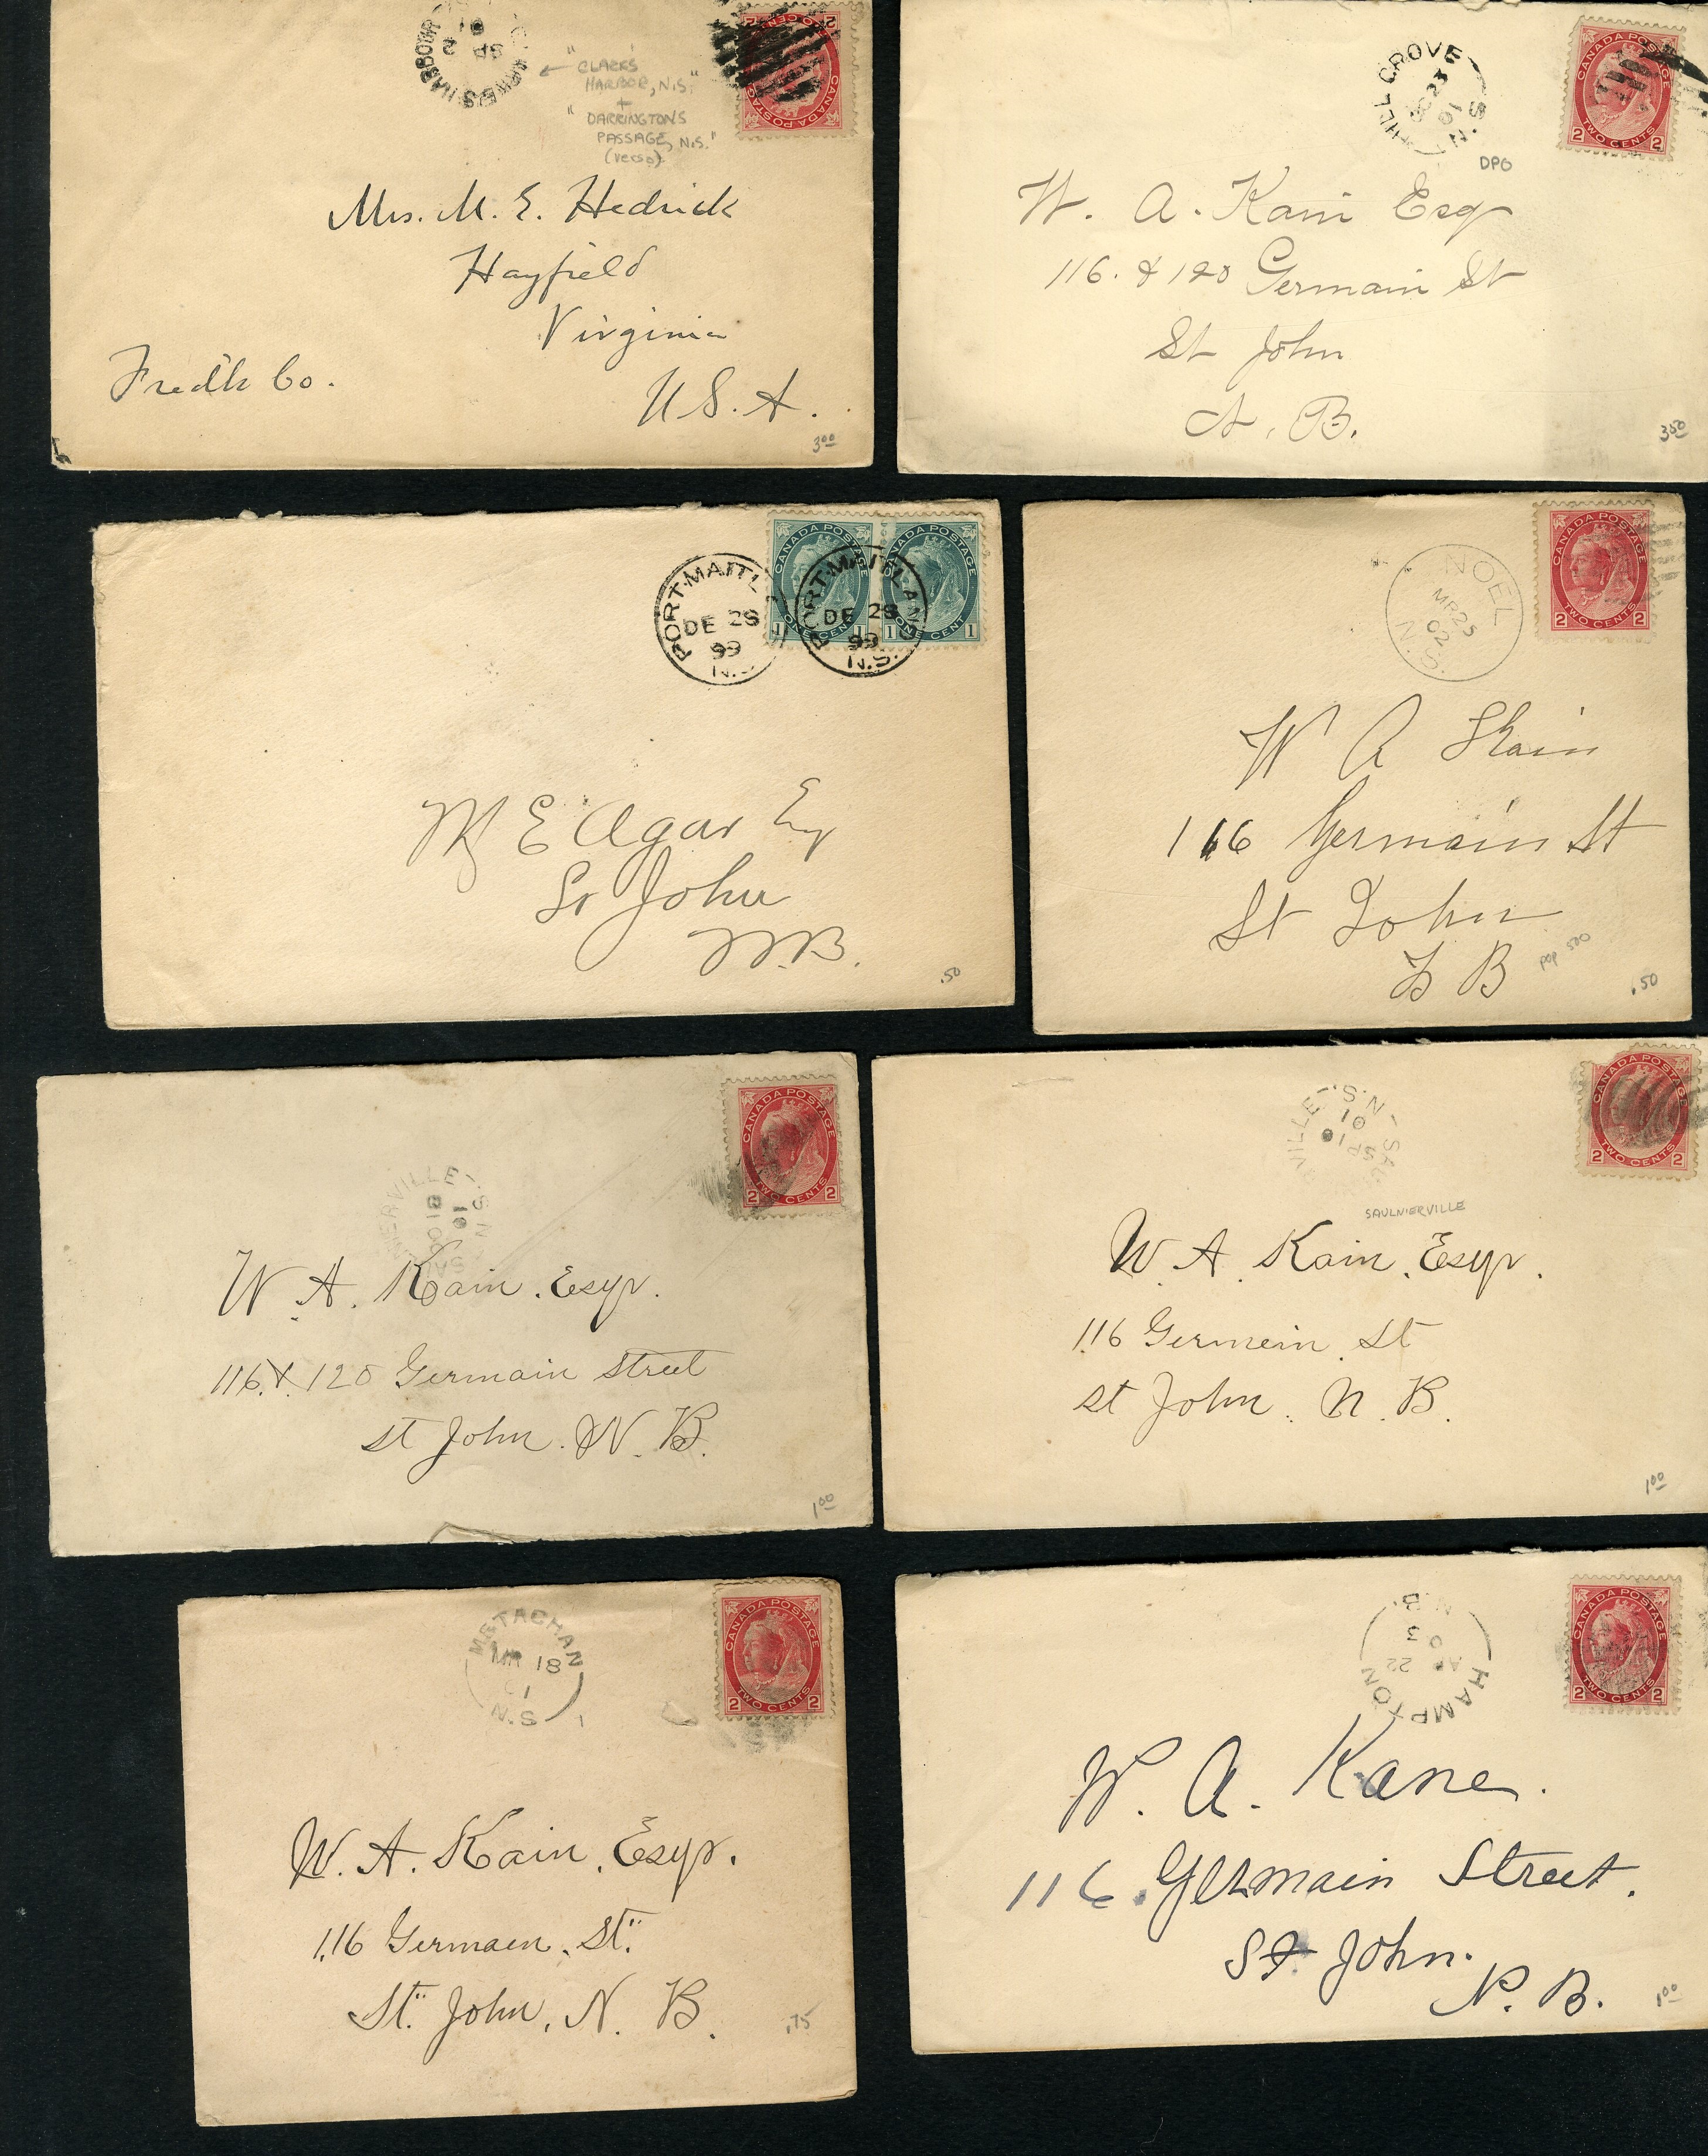 CLARKE'S HARBOUR
SP 2
01
"CLARK'S
HARBOR, N.S."
+
"DARRINGTONS
PASSAGE, N.S."
(verso)
CANADA POSTAGE
TWO CENTS
2 2
Mrs. M. E. Hedrick
Hayfield
Virginia
Fredk Co.
U.S.A.
3.00
HILL GROVE
23
01
N.S.
DPO
CANADA POSTAGE
2 TWO CENTS 2
W. A. Kain Esq
116. & 120 Germain St
St John
N. B.
3.50
PORT MAITL
DE 28
99
N.S.
PORT MAITLAND
DE 28
99
N.S.
CANADA POSTAGE
1 ONE CENT 1
CANADA POSTAGE
1 ONE CENT 1
M E Agar Esq
St John
N.B.
.50
NOEL
MR 25
02
N.S.
CANADA POSTAGE
2 TWO CENTS 2
W A Kain
116 Germain St
St John
N B
pop 500
.50
NIERVILLE - N.S
SA
01
CANADA POSTAGE
2 TWO CENTS 2
W. A. Kain. Esqr.
116. & 120 Germain Street
St John. N. B.
1.00
SAU VILLE - N.S -
SP 18
01
SAULNIERVILLE
CANADA POSTAGE
2 TWO CENTS 2
W. A. Kain. Esqr.
116 Germein. St
St John. N. B.
1.00
METACHAN
MR 18
1
N.S
CANADA POSTAGE
2 TWO CENTS 2
W. A. Kain. Esqr.
116 Germaen. St.
St. John, N. B.
.75
HAMPTON
AP 22
03
N.B.
CANADA POSTAGE
2 TWO CENTS 2
W. A. Kane.
116. Germain Street.
St John.
N. B.
1.00